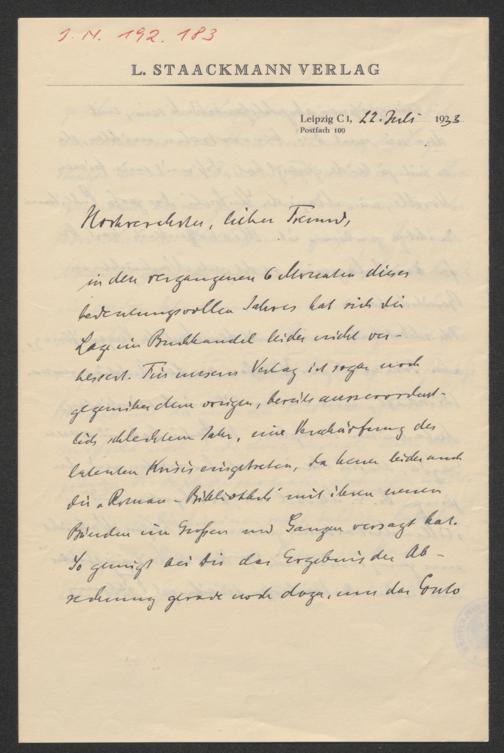 I. N. 192.183
L. STAACKMANN VERLAG
Leipzig C 1, 22. Juli 1933
Postfach 100
Hochverehrter, lieber Freund,
in den vergangenen 6 Monaten dieses
bedeutungsvollen Jahres hat sich die
Lage im Buchhandel leider nicht ver-
bessert. Für unseren Verlag ist sogar noch
gegenüber dem vorigen, bereits ausserordent-
lich schlechtem Jahr, eine Verschärfung der
latenten Krisis eingetreten, da heuer leider auch
die „Roman-Bibliothek" mit ihren neuen
Bänden im Großen und Ganzen versagt hat.
So genügt bei Dir das Ergebnis der Ab-
rechnung gerade noch dazu, um das Conto